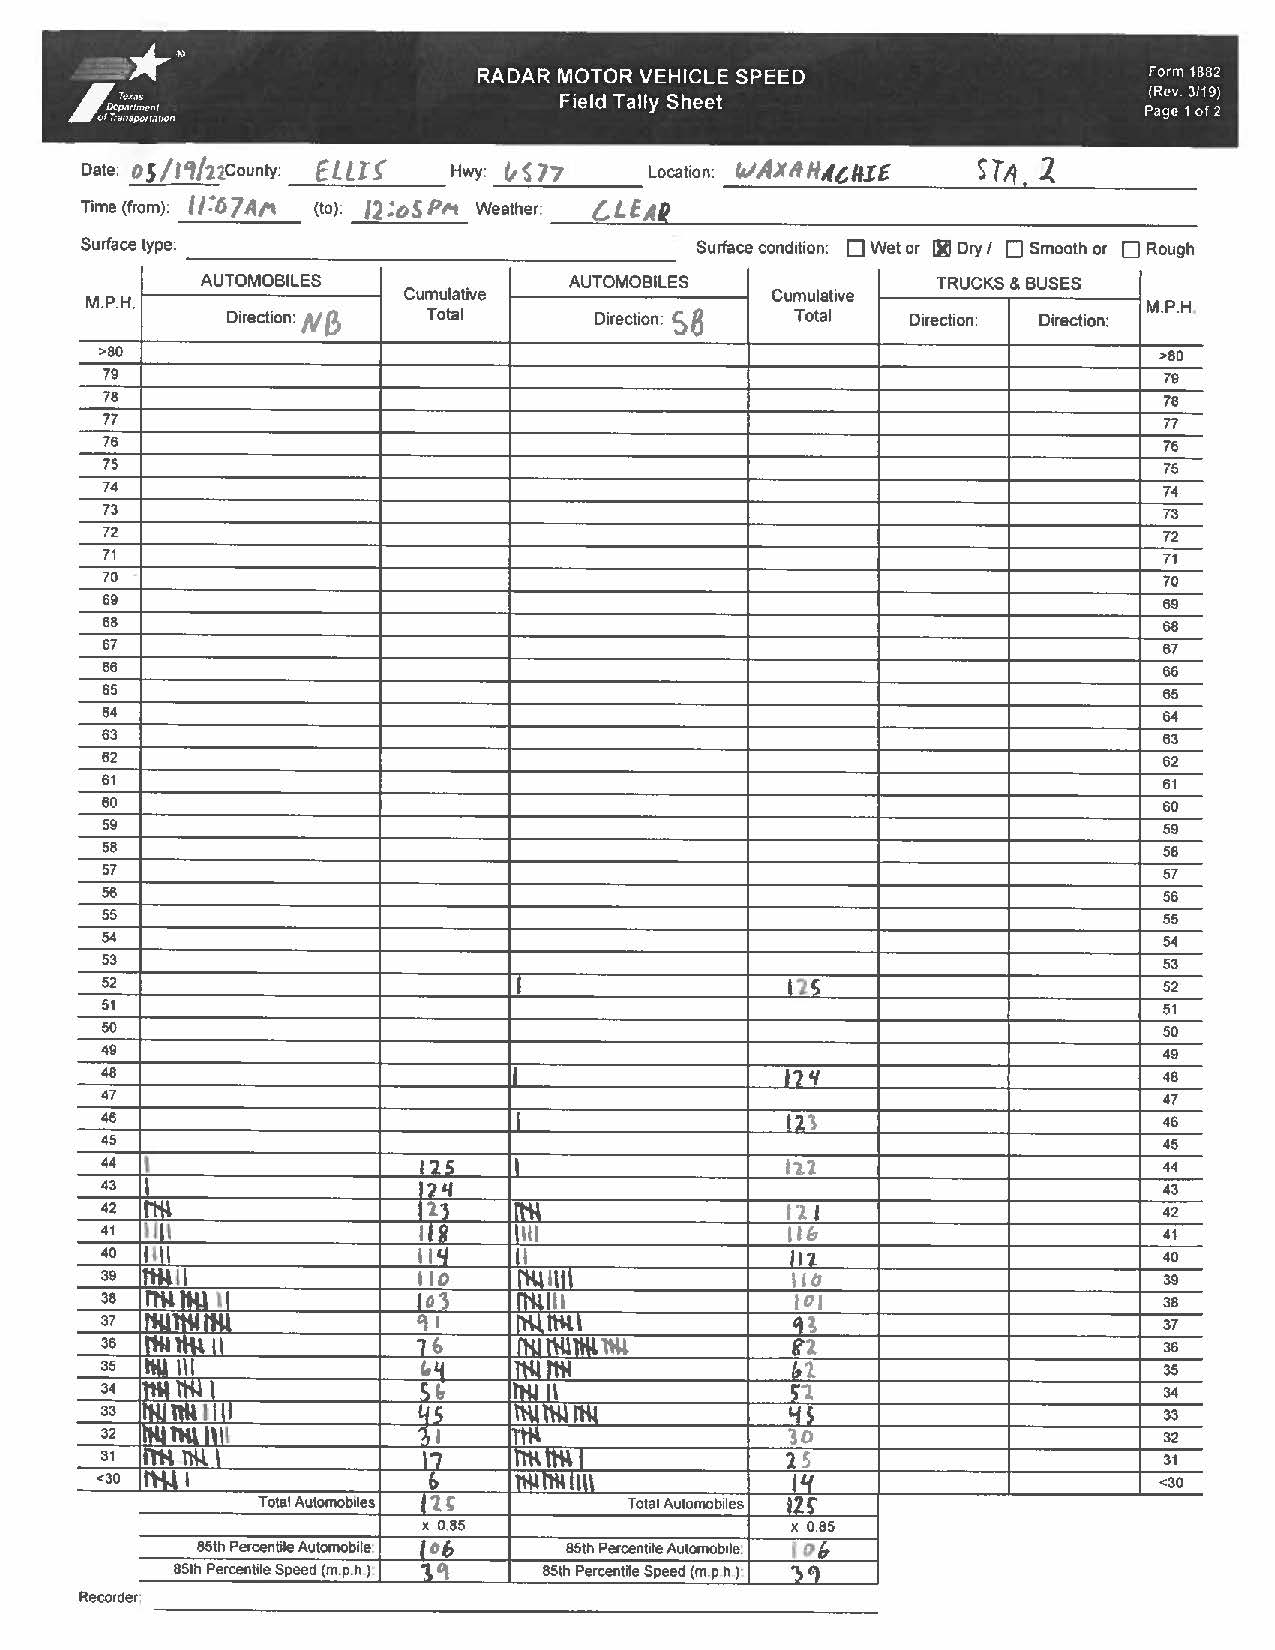 Texas
Department
of Transportation
RADAR MOTOR VEHICLE SPEED
Field Tally Sheet
Form 1882
(Rev. 3/19)
Page 1 of 2
Date: 05/19/22 County: ELLIS Hwy: US77 Location: WAXAHACHIE STA. 2
Time (from): 11:07AM (to): 12:05PM Weather: CLEAR
Surface type: Surface condition: Wet or Dry / Smooth or Rough
M.P.H. AUTOMOBILES Cumulative Total AUTOMOBILES Cumulative Total TRUCKS & BUSES M.P.H.
Direction: NB Direction: SB Direction: Direction:
>80 >80
79 79
78 78
77 77
76 76
75 75
74 74
73 73
72 72
71 71
70 70
69 69
68 68
67 67
66 66
65 65
64 64
63 63
62 62
61 61
60 60
59 59
58 58
57 57
56 56
55 55
54 54
53 53
52 | 125 52
51 51
50 50
49 49
48 | 124 48
47 47
46 | 123 46
45 45
44 | 125 | 122 44
43 | 124 43
42 123 121 42
41 |||| 118 |||| 116 41
40 |||| 114 || 112 40
39 110 110 39
38 103 101 38
37 91 93 37
36 76 82 36
35 64 62 35
34 56 52 34
33 45 45 33
32 31 30 32
31 17 25 31
<30 6 14 <30
Total Automobiles 125 Total Automobiles 125
x 0.85 x 0.85
85th Percentile Automobile: 106 85th Percentile Automobile: 106
85th Percentile Speed (m.p.h.): 39 85th Percentile Speed (m.p.h.): 39
Recorder: